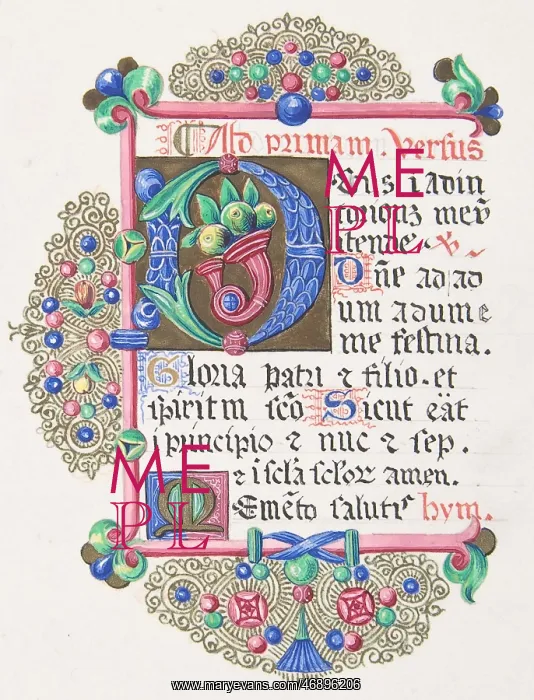 Ad primam. Versus
Deus i adiu
torionz meũ
itende.
Dñe ad ad
um adiuume
me festina.
Gloria patri ⁊ filio. et
spiritui scõ Sicut eãt
i principio ⁊ nũc ⁊ sep.
⁊ i scła scłoꝝ amen.
Memẽto salutis hym.
ME
PL
ME
PL
www.maryevans.com/46896206